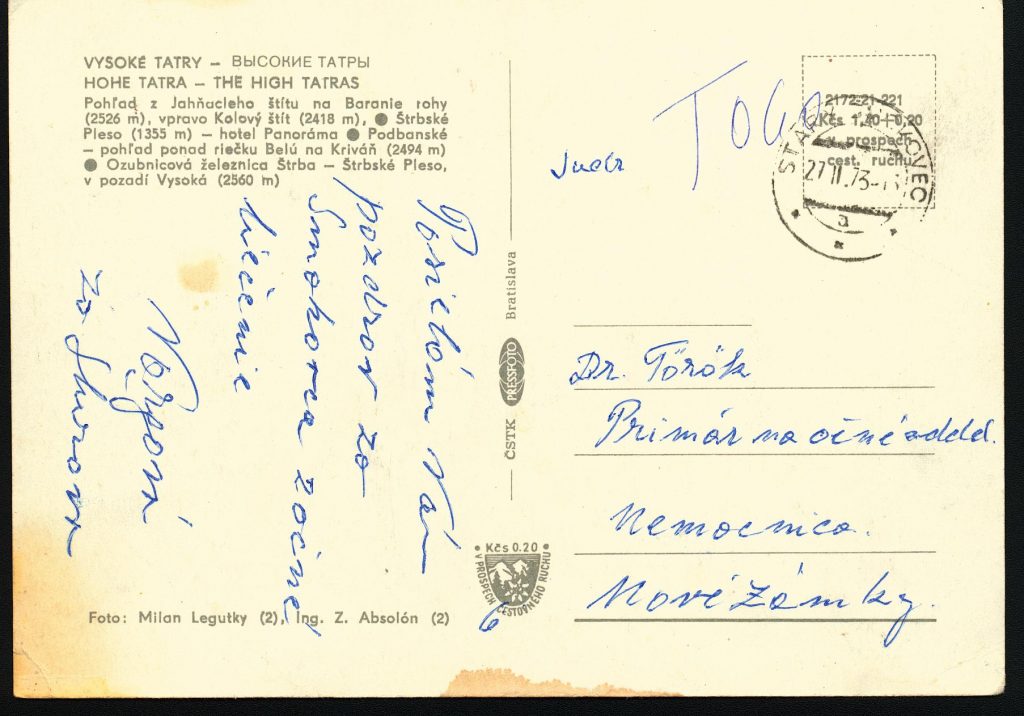 VYSOKÉ TATRY – ВЫСОКИЕ ТАТРЫ
HOHE TATRA – THE HIGH TATRAS
Pohľad z Jahňacieho štítu na Baranie rohy
(2526 m), vpravo Kolový štít (2418 m), ● Štrbské
Pleso (1355 m) – hotel Panoráma ● Podbanské
– pohľad ponad riečku Belú na Kriváň (2494 m)
● Ozubnicová železnica Štrba – Štrbské Pleso,
v pozadí Vysoká (2560 m)
Posielám Vám
pozdrav zo
Smokovca
liečenie
zo Šurova
Foto: Milan Legutky (2), Ing. Z. Absolón (2)
ČSTK PRESSFOTO Bratislava
Kčs 0.20
V PROSPECH CESTOVNÉHO RUCHU
6
2172-21-221
Kčs 1,40+0,20
v prospech
cest. ruchu
STARÝ SMOKOVEC
27.II.73
a
Dr. Török
Primár na očné addel.
Nemocnica.
Nové Zámky.